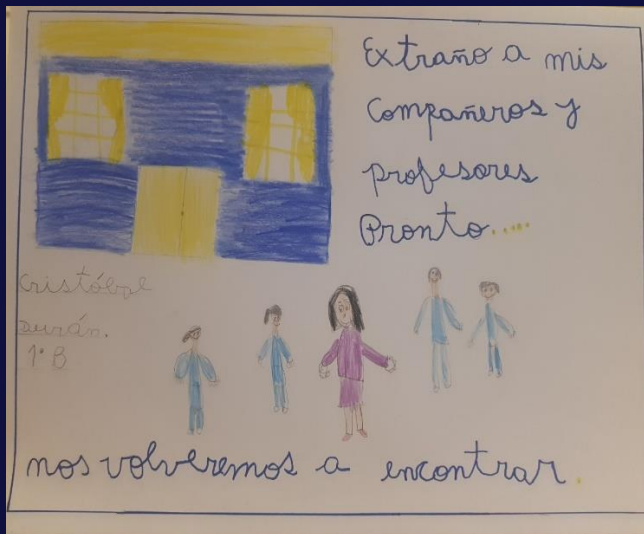 Extraño a mis
Compañeros y
profesores
Pronto.....
Cristóbal
Durán.
1° B
nos volveremos a encontrar.